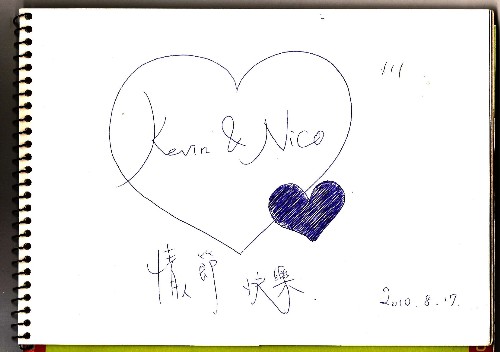 Kevin & Nico
情人節 快樂.
2010.8.17.